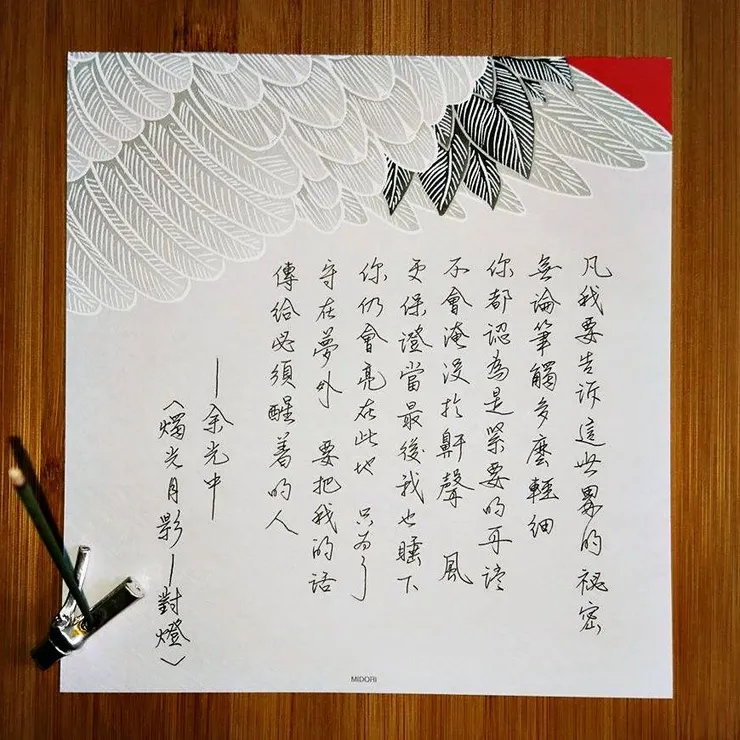 凡我要告訴這世界的祕密
無論筆觸多麼輕細
你都認為是緊要的耳語
不會淹沒於鼾聲 風
更保證當最後我也睡下
你仍會亮在此地 只為了
守在夢外 要把我的話
傳給必須醒著的人
—余光中
〈燭光月影—對燈〉
MIDORI